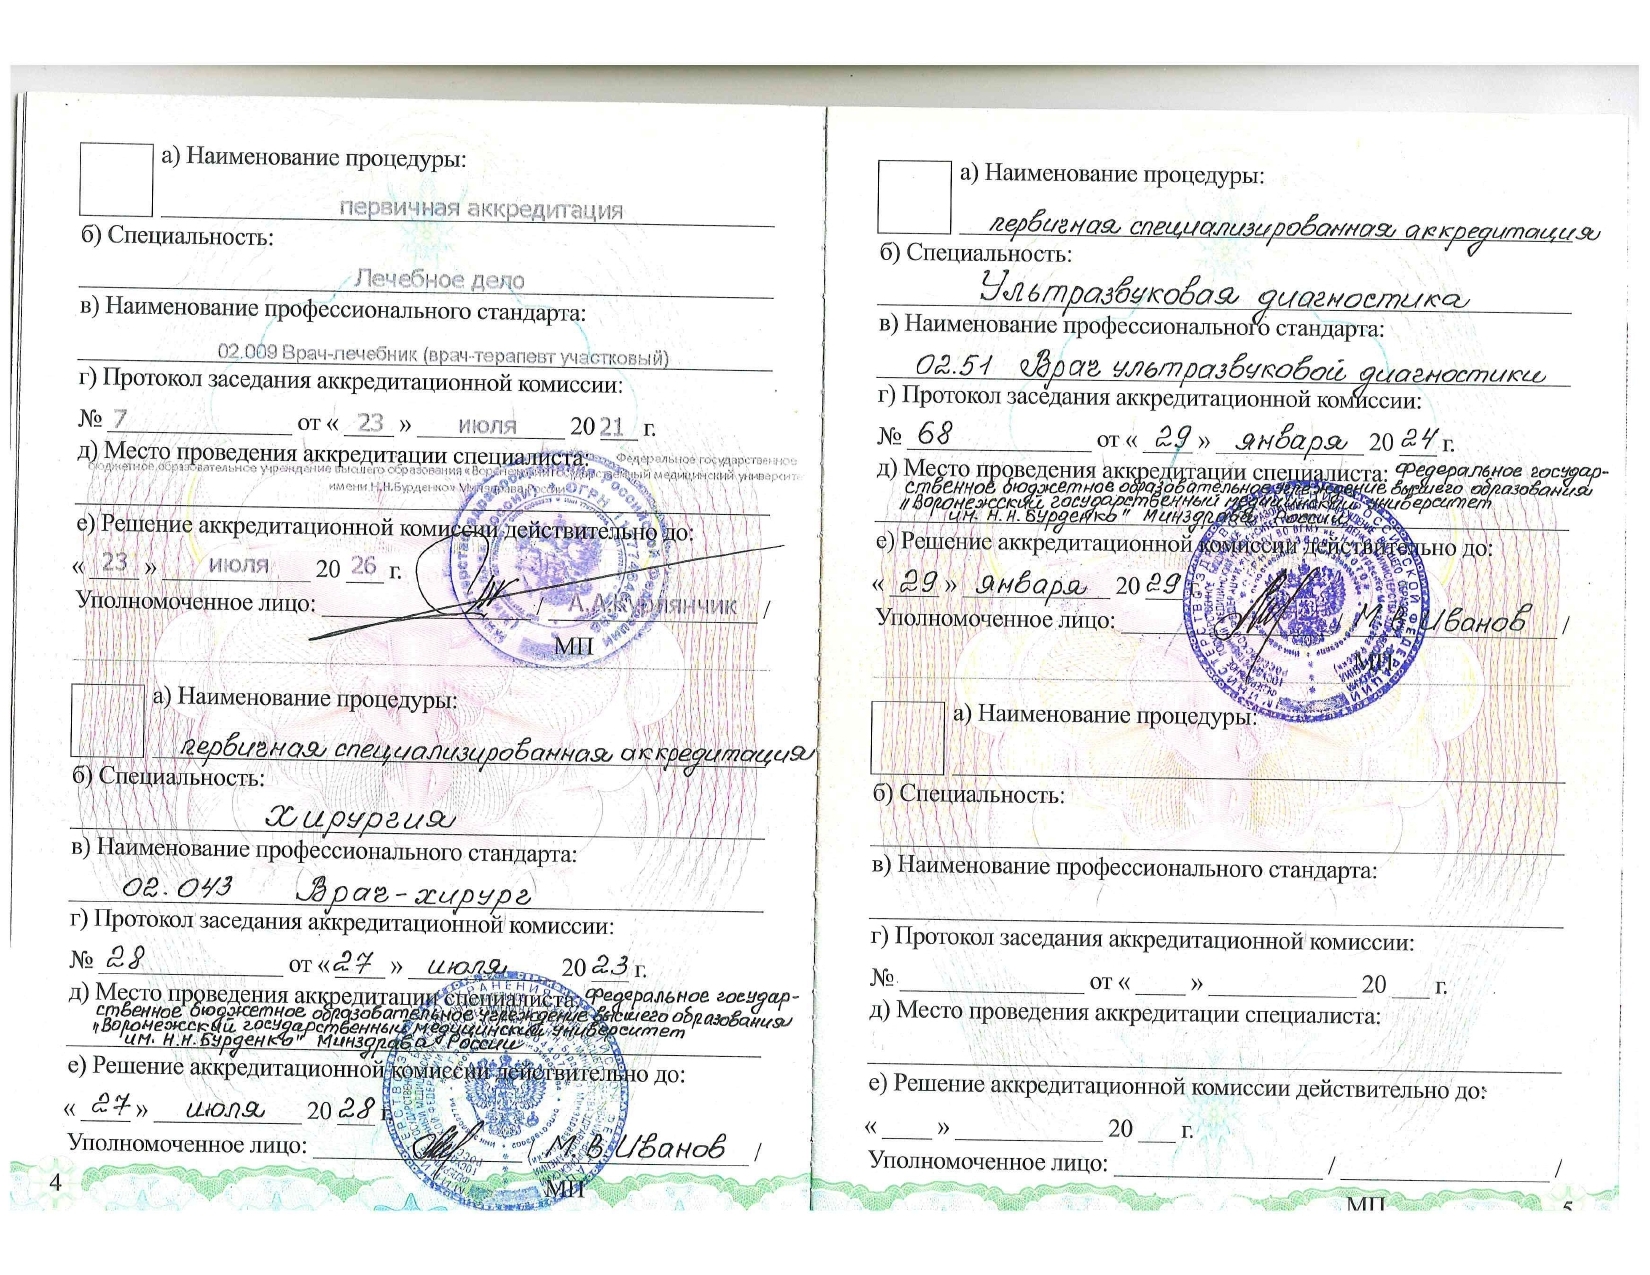 а) Наименование процедуры:
первичная аккредитация
б) Специальность:
Лечебное дело
в) Наименование профессионального стандарта:
02.009 Врач-лечебник (врач-терапевт участковый)
г) Протокол заседания аккредитационной комиссии:
№ 7 от « 23 » июля 20 21 г.
д) Место проведения аккредитации специалиста: Федеральное государственное
бюджетное образовательное учреждение высшего образования «Воронежский государственный медицинский университ
имени Н.Н.Бурденко» Минздрава России
е) Решение аккредитационной комиссии действительно до:
« 23 » июля 20 26 г.
Уполномоченное лицо: / А.А. /
МП
а) Наименование процедуры:
первичная специализированная аккредитация
б) Специальность:
Хирургия
в) Наименование профессионального стандарта:
02.043 Врач-хирург
г) Протокол заседания аккредитационной комиссии:
№ 28 от « 27 » июля 20 23 г.
д) Место проведения аккредитации специалиста: Федеральное государ-
ственное бюджетное образовательное учреждение высшего образования
"Воронежский государственный медицинский университет
им. Н.Н. Бурденко" Минздрава России
е) Решение аккредитационной комиссии действительно до:
« 27 » июля 20 28 г.
Уполномоченное лицо: / М.В. Иванов /
МП
4
а) Наименование процедуры:
первичная специализированная аккредитация
б) Специальность:
Ультразвуковая диагностика
в) Наименование профессионального стандарта:
02.51 Врач ультразвуковой диагностики
г) Протокол заседания аккредитационной комиссии:
№ 68 от « 29 » января 20 24 г.
д) Место проведения аккредитации специалиста: Федеральное государ-
ственное бюджетное образовательное учреждение высшего образования
"Воронежский государственный медицинский университет
им. Н.Н. Бурденко" Минздрава России
е) Решение аккредитационной комиссии действительно до:
« 29 » января 20 29
Уполномоченное лицо: / М.В. Иванов /
МП
а) Наименование процедуры:
б) Специальность:
в) Наименование профессионального стандарта:
г) Протокол заседания аккредитационной комиссии:
№ от « » 20 г.
д) Место проведения аккредитации специалиста:
е) Решение аккредитационной комиссии действительно до:
« » 20 г.
Уполномоченное лицо: / /
МП
5